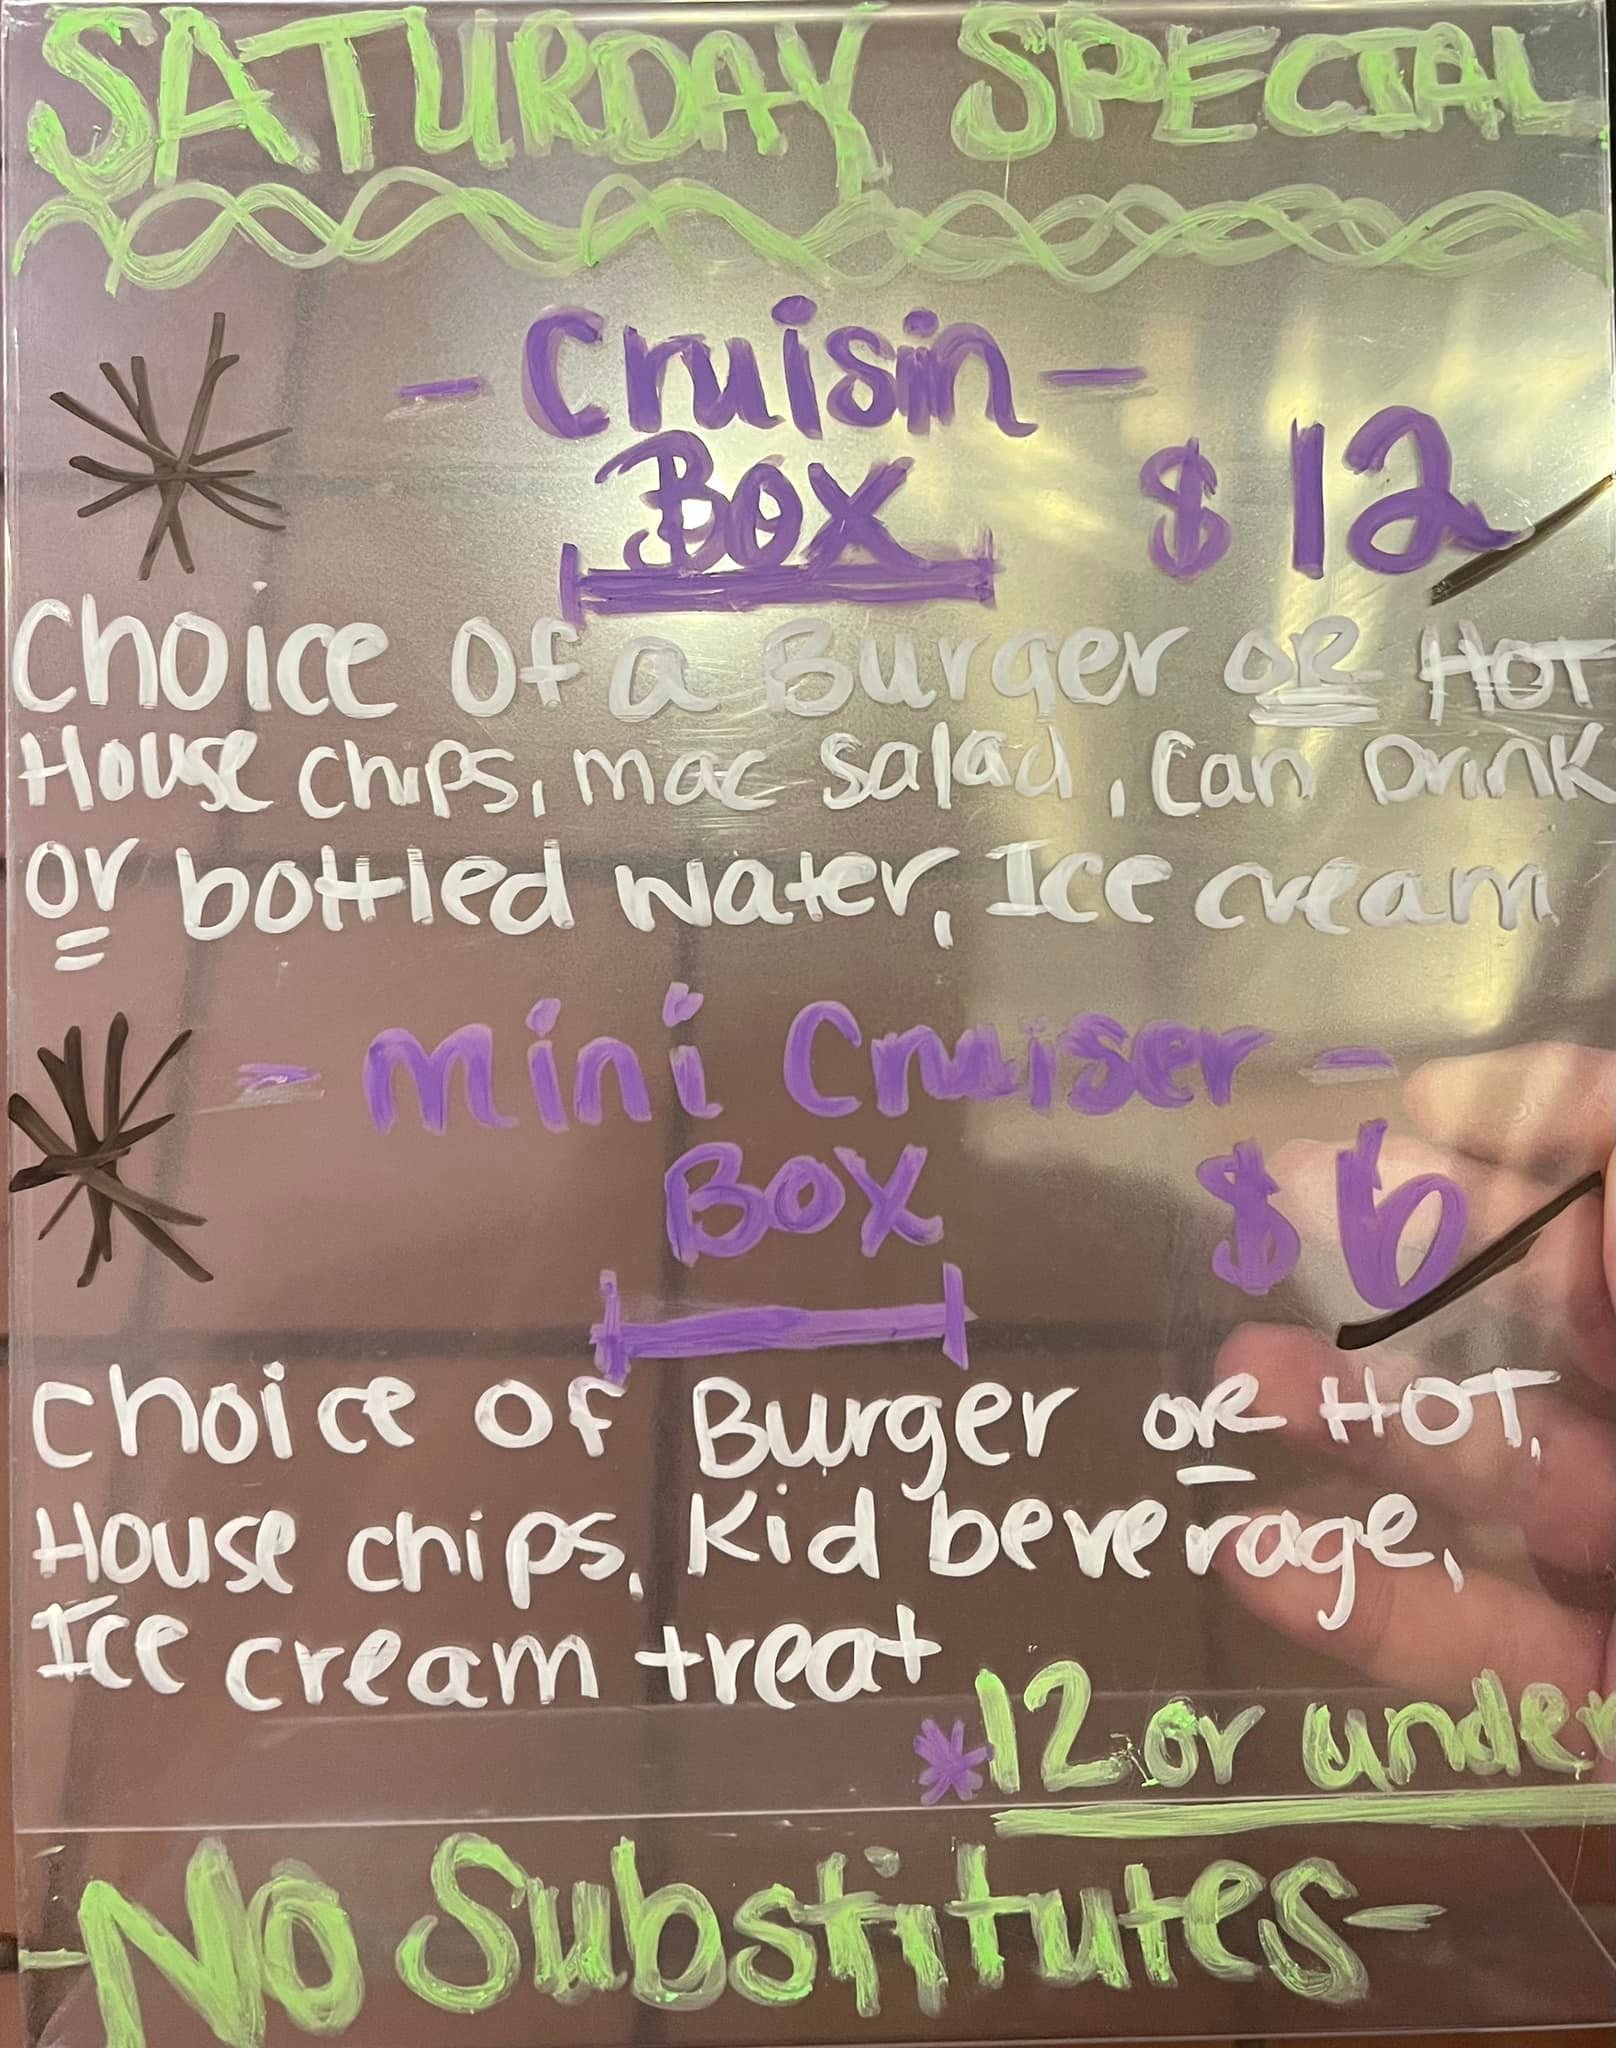 SATURDAY SPECIAL
- Cruisin -
Box $12
Choice Of a Burger OR HOT
House chips, mac salad, Can Drink
or bottled water, Ice cream
- mini Cruiser -
Box $6
choice of Burger OR HOT,
House chips, Kid beverage,
Ice cream treat
*12 or under
-NO Substitutes-